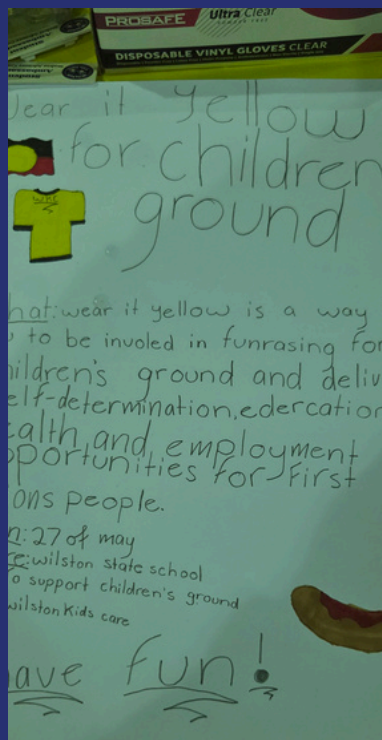 PROSAFE
Ultra Clear
POWDER FREE
DISPOSABLE VINYL GLOVES CLEAR
ear it yellow
for children
WKC
ground
hat: wear it yellow is a way
to be involed in funrasing for
hildren's ground and deliv
elf-determination, edercation
ealth, and employment
pportunities for First
ions people.
n: 27 of may
re: wilston state school
o support children's ground
wilston Kids care
ave fun!